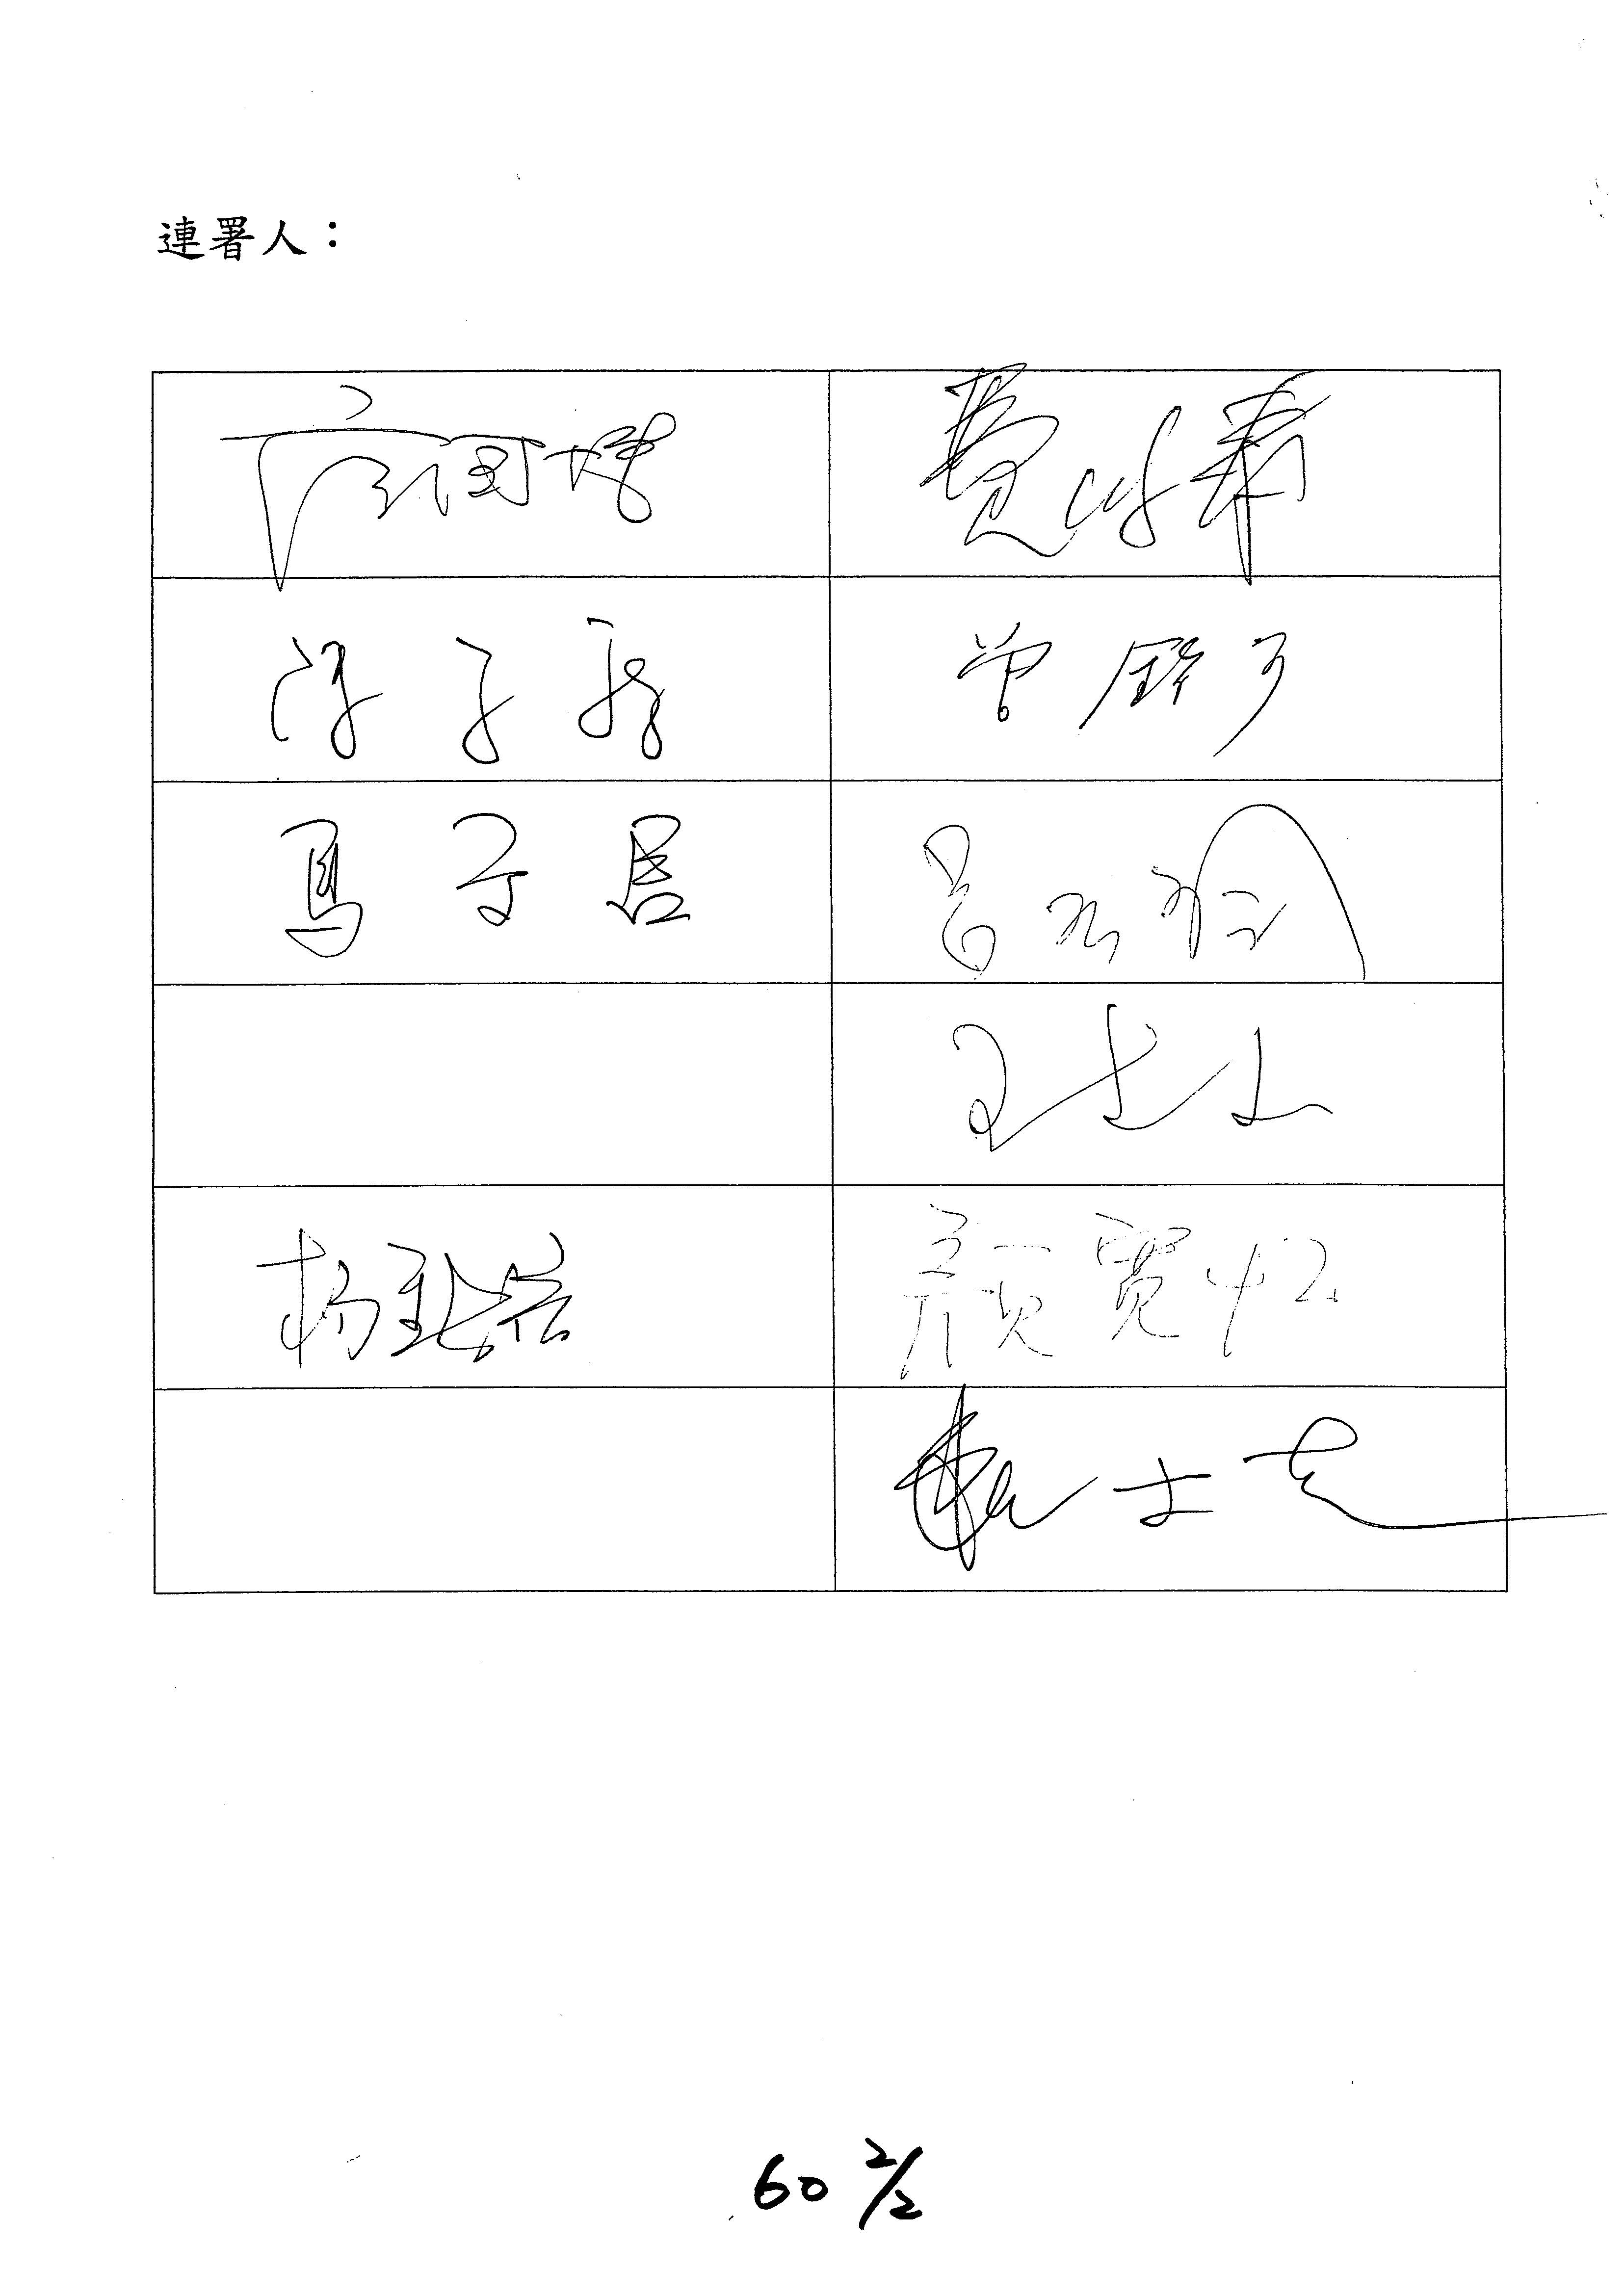 連署人：
廖國棟 費鴻泰
曾銘宗
馬文君 呂玉玲
楊鎮浯 顏寬恒
賴士葆
60 2/2